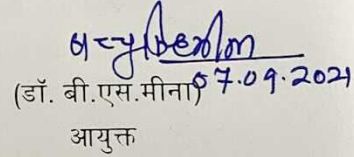 07.09.2021
(डॉ. बी.एस.मीना)
आयुक्त